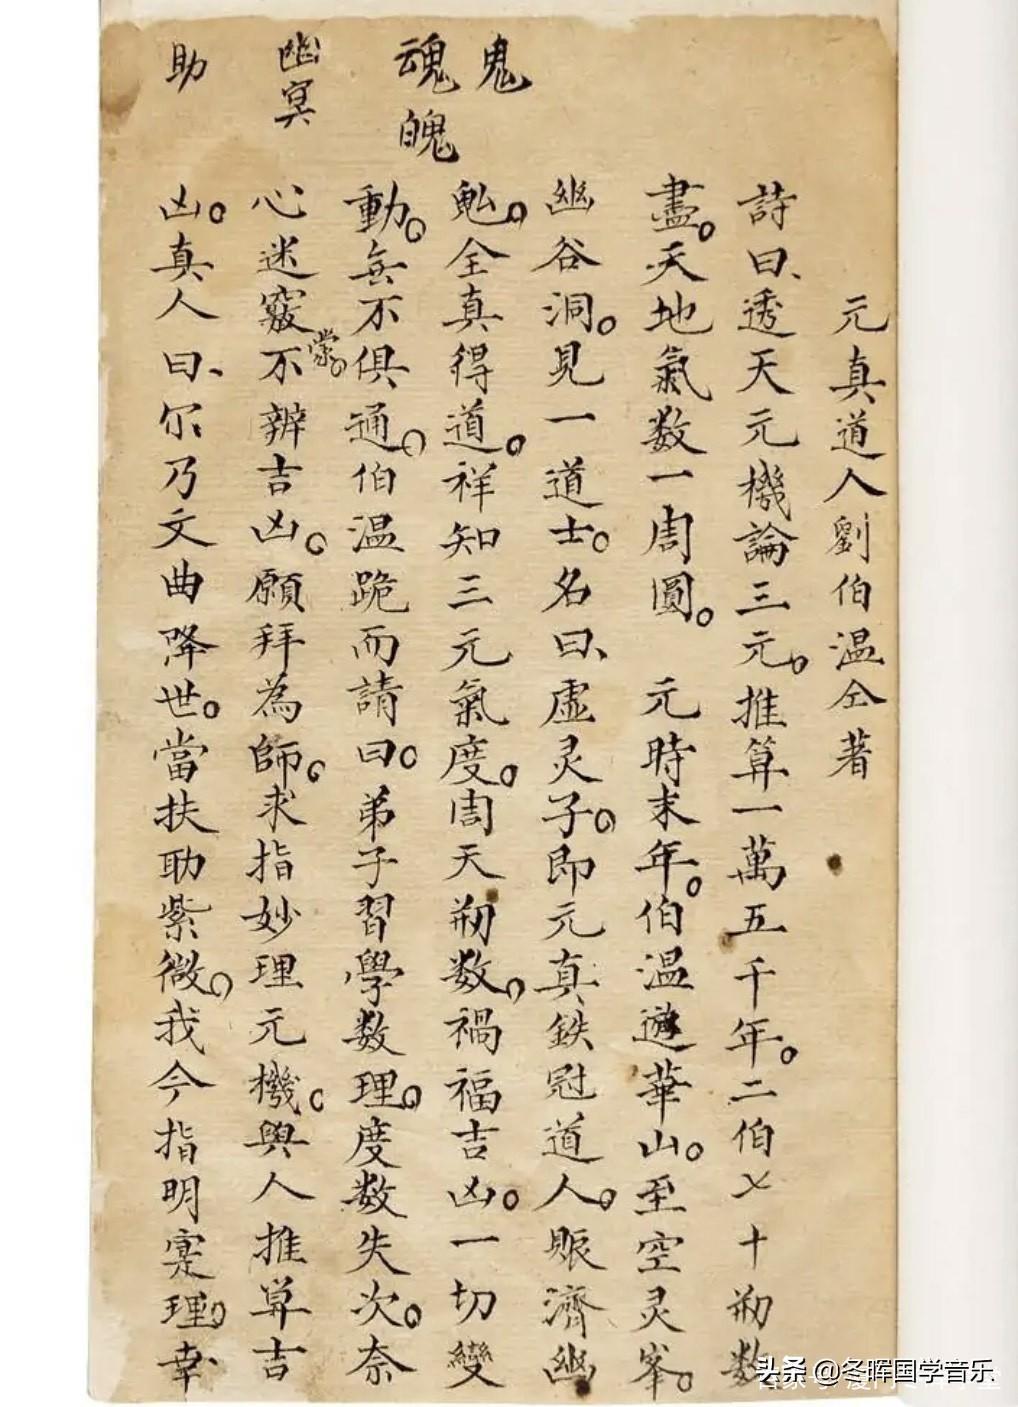 元真道人劉伯温仝著
詩曰、透天元機論三元。推算一萬五千年。二伯十刼数
盡。天地氣数一周圓。 元時末年。伯温遊華山。至空灵峯。
幽谷洞。見一道士。名曰、虛灵子。即元真鉄冠道人。賑濟幽
鬼
魂魄
魂。全真得道。祥知三元氣度。周天刼数。禍福吉凶。一切變
動。無不俱通。伯温跪而請曰。弟子習學数理。度数失次。奈
幽冥
心迷竅蒙。不辨吉凶。願拜為師。求指妙理元機。與人推算吉
助
凶。真人曰、尔乃文曲降世。當扶助紫微。我今指明寔理。幸
头条 @冬晖国学音乐